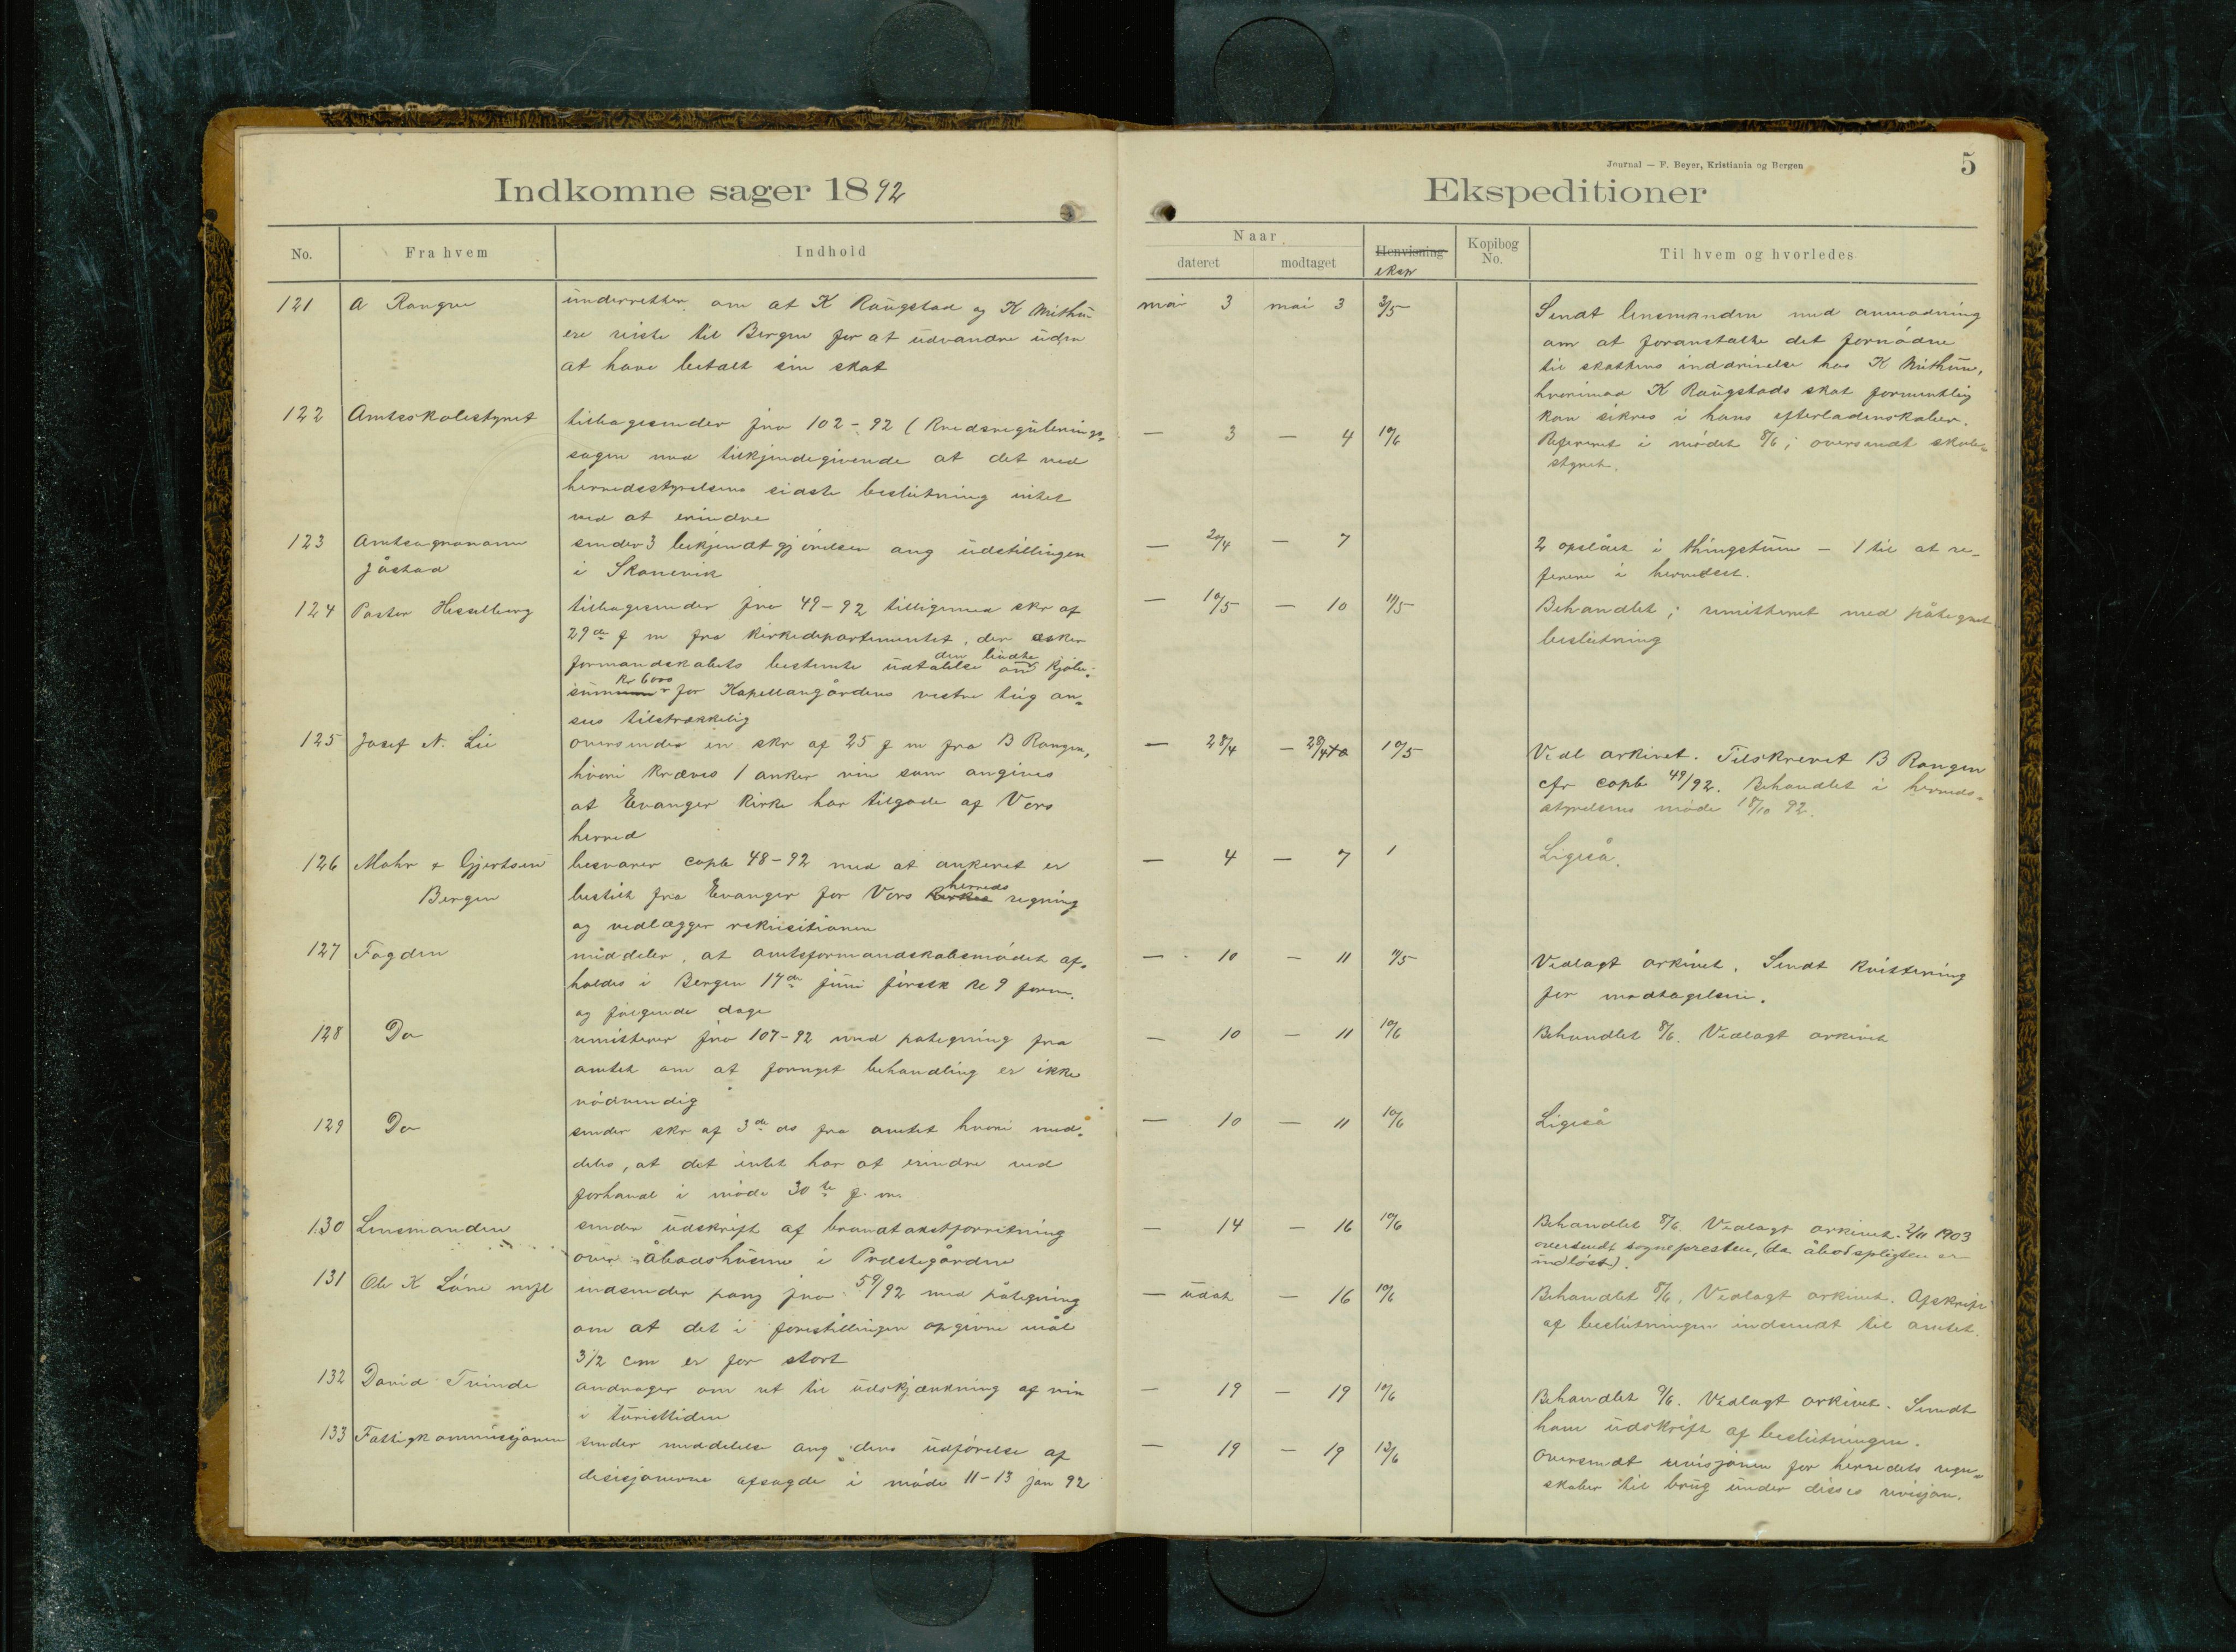 Indkomne sager 1892
No.
Fra hvem
Indhold
121
A Rongve
underretter om at K Raugstad og K Mithun
ere reiste til Bergen for at udvandre uden
at have betalt sin skat
122
Amtsskolestyret
tilbagesender jno 102-92 (Kredsregulerings-
sagen med tilkjendegivende at det ved
herredsstyrelsens sidste beslutning intet
ved at erindre
123
Amtsagronom
Jåstad
sender 3 bekjendtgjörelser ang udstillingen
i Skånevik
124
Pastor Hesselberg
tilbagesender jno 49-92 tilligemed skr af
29de f m fra Kirkedepartementet, der æsker
formandskabets bestemte udtalelse om den budte kjöbe-
sum Kr 6000 for Kapellangårdens vestre tug an-
sees tilstrækkelig
125
Josef N. Lie
oversender en skr af 25 f m fra B Rongen,
hvori kræves 1 anker vin som angives
at Evanger Kirke har tilgode af Vors
herred
126
Mohr & Gjertsen
Bergen
besvarer copb 48-92 med at ankeret er
bestilt fra Evanger for Vors Kirkes herreds regning
og vedlægger rekvisitionen
127
Fogden
meddeler, at amtsformandskabsmödet af-
holdes i Bergen 14de juni förstk kl 9 form.
og fölgende dage
128
Do
remitterer jno 107-92 med pategning fra
amtet om at fornyet behandling er ikke
nödvendig
129
Do
sender skr af 3de ds fra amtet hvori med-
deles, at det intet har at erindre ved
forhandl i möde 30te f. m.
130
Lensmanden
sender udskrift af brandtakstforretning
over åbodshusene i Præstegården
131
Ole K Löne mfl
indsender pang jno 59/92 med påtegning
om at det i forestillingen opgivne mål
3 1/2 cm er for stort
132
David Tvinde
andrager om ret til udskjænkning af vin
i turisttiden
133
Fattigkommissjonen
sender meddelelse ang dens udförelse af
desisjonerne afsagde i möde 11-13 jan 92
Journal — F. Beyer, Kristiania og Bergen
5
Ekspeditioner
Naar
dateret
modtaget
Henvisning
eksp
Kopibog
No.
Til hvem og hvorledes
mai 3 mai 3 3/5
Sendt lensmanden med anmodning
om at foranstalte det fornödne
til skattens inddrivelse hos K Mithun,
hvorimod K Raugstads skat formentlig
kan sikres i hans efterladenskaber.
— 3 — 4 10/6
Refereret i mödet 8/6; oversendt skole-
styret.
— 20/4 — 7
2 opslået i thingstuen — 1 til at re-
ferere i herredsst.
— 10/5 — 10 11/5
Behandlet; remitteret med påtegnet
beslutning
— 28/4 — 29/4 10/5
Vedl arkivet. Tilskrevet B Rongen
cfr copb 49/92. Behandlet i herreds-
styrelsens möde 18/10 92.
— 4 — 7 1
Ligeså.
— 10 — 11 11/5
Vedlagt arkivet. Sendt kvittering
for modtagelsen.
— 10 — 11 10/6
Behandlet 8/6. Vedlagt arkivet
— 10 — 11 10/6
Ligeså
— 14 — 16 10/6
Behandlet 8/6. Vedlagt arkivet. 2/11 1903
oversendt sognepresten, (da åbodspligten er
indlöst).
— udat — 16 10/6
Behandlet 8/6, Vedlagt arkivet. Afskrift
af beslutningen indsendt til amtet.
— 19 — 19 10/6
Behandlet 9/6. Vedlagt arkivet. Sendt
ham udskrift af beslutningen.
— 19 — 19 13/6
Oversendt revisjonen for herredets regn-
skaber til brug under disses revisjon.